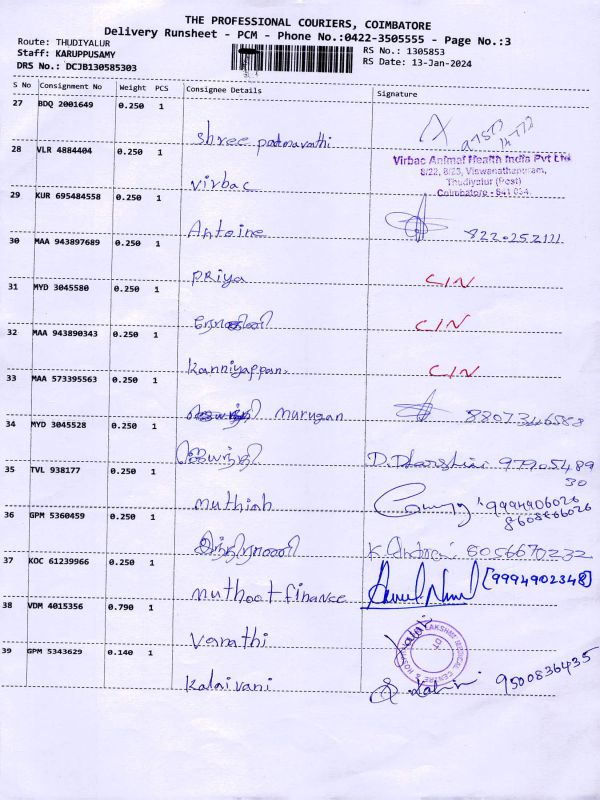 THE PROFESSIONAL COURIERS, COIMBATORE
Delivery Runsheet - PCM - Phone No.:0422-3505555 - Page No.:3
Route: THUDIYALUR
RS No.: 1305853
Staff: KARUPPUSAMY
RS Date: 13-Jan-2024
DRS No.: DCJB130585303
S No Consignment No Weight PCS Consignee Details Signature
27 BDQ 2001649 0.250 1
shree padmavathi
28 VLR 4884404 0.250 1
Virbac Animal Health India Pvt Ltd
8/22, 8/23, Viswanathapuram,
Thudiyalur (Post)
Coimbatore - 641 034.
virbac
29 KUR 695484558 0.250 1
Antoine
30 MAA 943897689 0.250 1
PRiya CIN
31 MYD 3045580 0.250 1
CIN
32 MAA 943890343 0.250 1
Kanniyappan CIN
33 MAA 573395563 0.250 1
murugan 8807346588
34 MYD 3045528 0.250 1
ஜெயந்தி
35 TVL 938177 0.250 1
muthiah 9994906026
36 GPM 5360459 0.250 1
8056670232
37 KOC 61239966 0.250 1
muthoot finance [9994902348]
38 VDM 4015356 0.790 1
Varathi
39 GPM 5343629 0.140 1
Kalaivani 9500836435